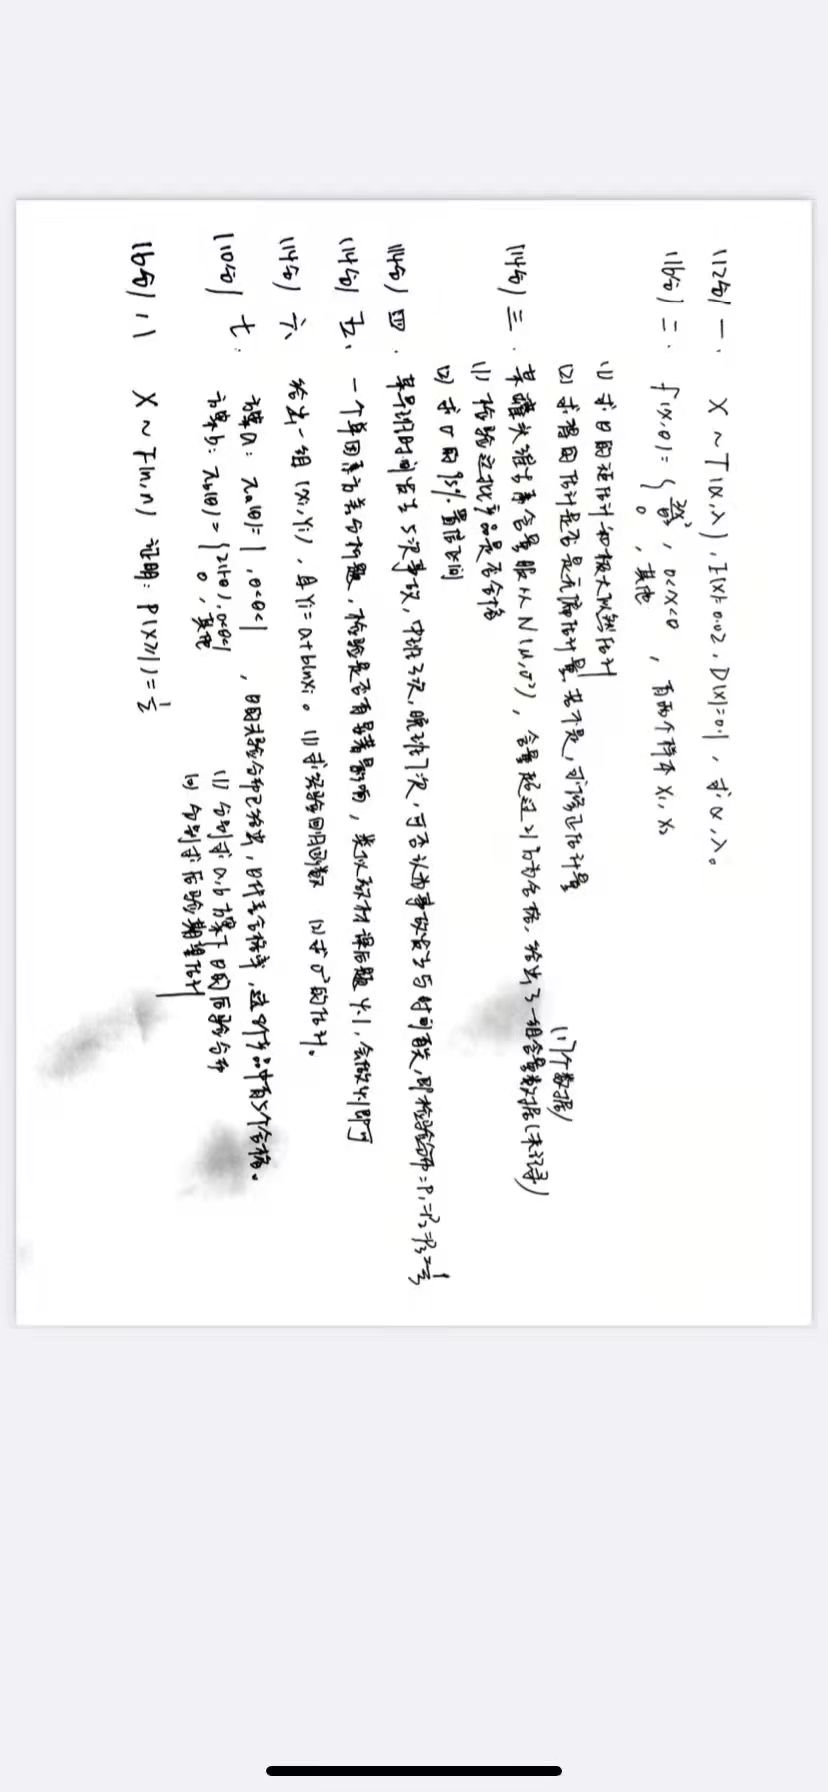 (12分) 一. X ~ Γ(α,λ), E(X)=0.02, D(X)=0.1, 求α,λ。
(16分) 二. f(x,θ)={3x²/θ³, 0<x<θ
0, 其他, 有两个样本 X₁, X₂
(1) 求θ的矩估计和极大似然估计
(2) 求得的估计是否是无偏估计量,若不是,求修正估计量
(17个数据)
(14分) 三. 某罐头维生素含量服从N(μ,σ²), 含量超过21方为合格. 给出了一组含量数据(未记录)
(1) 检验这批产品是否合格
(2) 求σ的95%置信区间
(14分) 四. 某早班时间发生5次事故, 中班3次, 晚班7次, 可否认为事故发生与时间有关, 即检验分布:P₁=P₂=P₃=1/3
(14分) 五. 一个单因素方差分析题, 检验是否有显著影响, 类似教材课后题4.1, 会做4.1即可
(14分) 六、 给出一组(xᵢ,yᵢ), 且yᵢ=a+blnxᵢ。(1) 求经验回归函数 (2) 求σ²的估计。
(10分) 七. 方案a: πa(θ)=1, 0<θ<1, θ的先验分布已给出, θ代表合格率, 这8个产品中有5个合格。
方案b: πb(θ)={2(1-θ), 0<θ<1
0, 其他
(1) 分别求a,b方案下θ的后验分布
(2) 分别求后验期望估计
(6分) 八 X ~ F(n,n) 证明: P(X≥1)=1/2